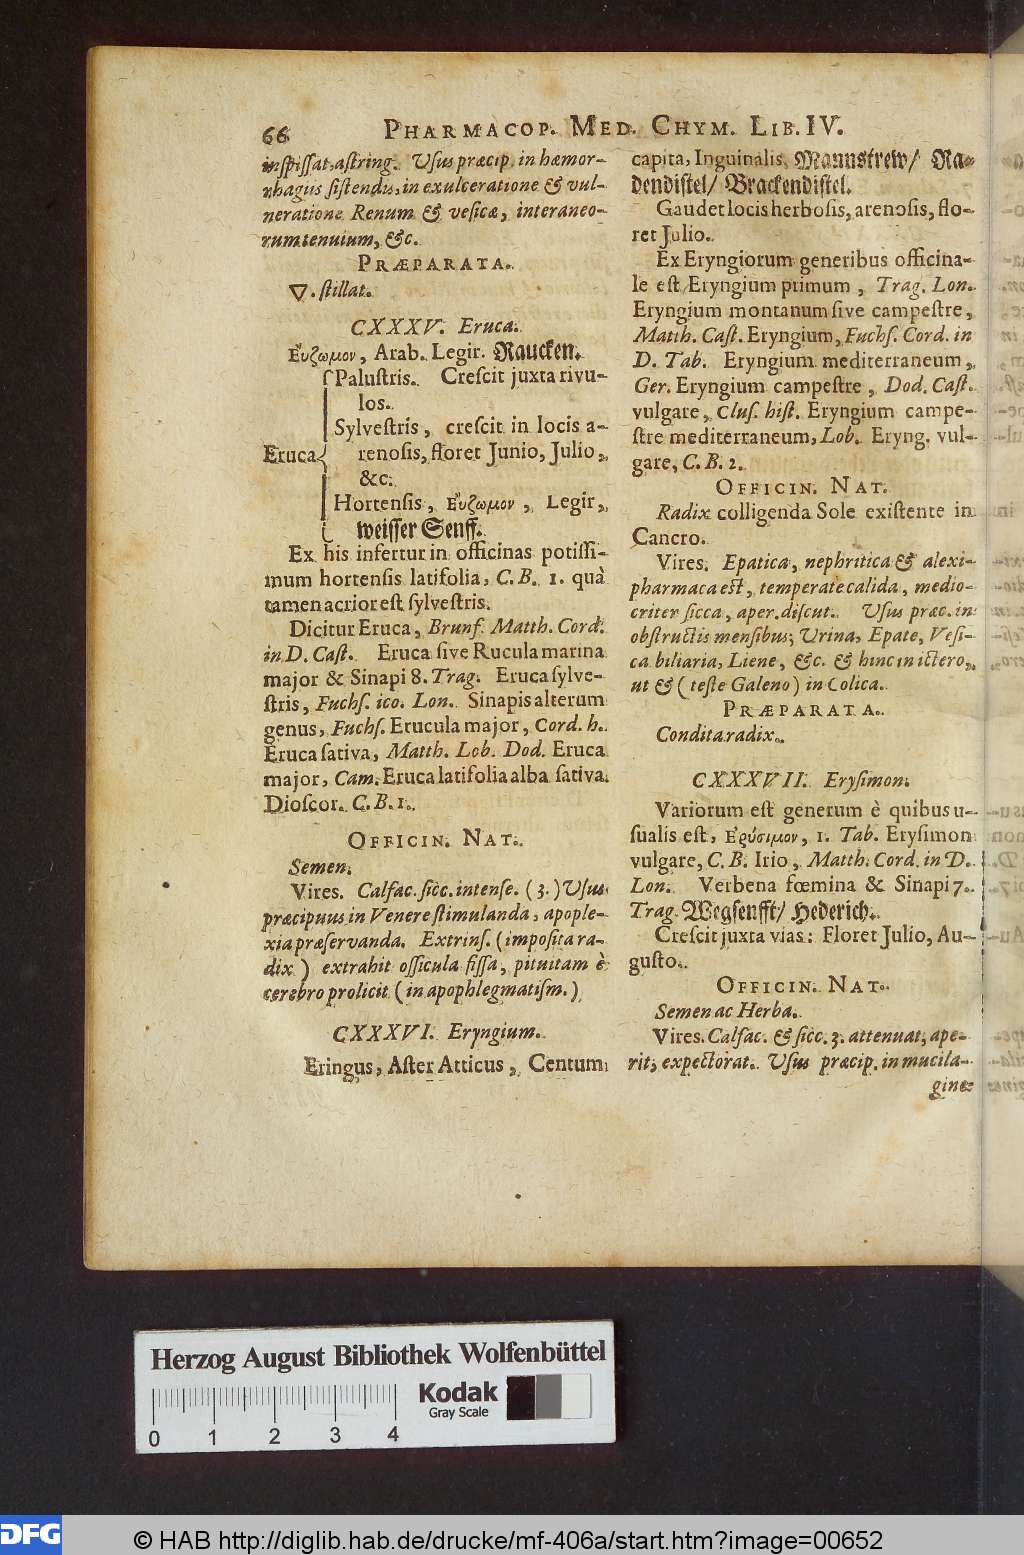 66 PHARMACOP. MED. CHYM. LIB. IV.
inſpiſſat, aſtring. Uſus præcip. in hæmor-
rhagiis ſiſtendis, in exulceratione & vul-
neratione Renum & veſicæ, interaneo-
rum tenuium, &c.
PRÆPARATA.
▽. ſtillat.
CXXXV. Eruca.
Εὔζωμον, Arab. Legir. Raucken.
Paluſtris. Creſcit juxta rivu-
los.
Sylveſtris, creſcit in locis a-
Eruca renoſis, floret Junio, Julio,
&c.
Hortenſis, Εὔζωμον, Legir,
weiſſer Senff.
Ex his infertur in officinas potiſſi-
mum hortenſis latifolia, C. B. 1. quà
tamen acrior eſt ſylveſtris.
Dicitur Eruca, Brunf. Matth. Cord.
in D. Caſt. Eruca ſive Rucula marina
major & Sinapi 8. Trag. Eruca ſylve-
ſtris, Fuchſ. ico. Lon. Sinapis alterum
genus, Fuchſ. Erucula major, Cord. h.
Eruca ſativa, Matth. Lob. Dod. Eruca
major, Cam. Eruca latifolia alba ſativa
Dioſcor. C. B. 1.
OFFICIN. NAT.
Semen.
Vires. Calfac. ſicc. intenſe. (3.) Uſus
præcipuus in Venere ſtimulanda, apople-
xia præſervanda. Extrinſ. (impoſita ra-
dix) extrahit oſſicula fiſſa, pituitam è
cerebro prolicit (in apophlegmatiſm.)
CXXXVI. Eryngium.
Eringus, Aſter Atticus, Centum
capita, Inguinalis, Mannstrew/ Ra-
dendiſtel/ Brackendiſtel.
Gaudet locis herboſis, arenoſis, flo-
ret Julio.
Ex Eryngiorum generibus officina-
le eſt Eryngium primum, Trag. Lon.
Eryngium montanum ſive campeſtre,
Matth. Caſt. Eryngium, Fuchſ. Cord. in
D. Tab. Eryngium mediterraneum,
Ger. Eryngium campeſtre, Dod. Caſt.
vulgare, Cluſ. hiſt. Eryngium campe-
ſtre mediterraneum, Lob. Eryng. vul-
gare, C. B. 2.
OFFICIN. NAT.
Radix colligenda Sole exiſtente in
Cancro.
Vires. Epatica, nephritica & alexi-
pharmaca eſt, temperate calida, medio-
criter ſicca, aper. diſcut. Uſus præc. in
obſtructis menſibus, Urina, Epate, Veſi-
ca biliaria, Liene, &c. & hinc in ictero,
ut & (teſte Galeno) in Colica.
PRÆPARATA.
Condita radix.
CXXXVII. Eryſimon.
Variorum eſt generum è quibus u-
ſualis eſt, Ἐρύσιμον, 1. Tab. Eryſimon
vulgare, C. B. Irio, Matth. Cord. in D.
Lon. Verbena fœmina & Sinapi 7.
Trag. Wegſenfft/ Hederich.
Creſcit juxta vias: Floret Julio, Au-
guſto.
OFFICIN. NAT.
Semen ac Herba.
Vires. Calfac. & ſicc. 3. attenuat, ape-
rit, expectorat. Uſus præcip. in mucila-
gine
Herzog August Bibliothek Wolfenbüttel
Kodak
Gray Scale
0 1 2 3 4
DFG
© HAB http://diglib.hab.de/drucke/mf-406a/start.htm?image=00652